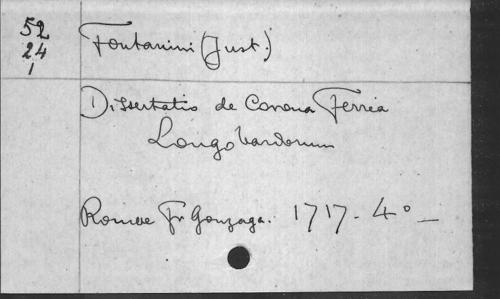 52
24
1
Fontanini (Just.)
Dissertatio de Corona Ferrea
Longobardorum
Romae Fr Gonzaga. 1717. 4° _